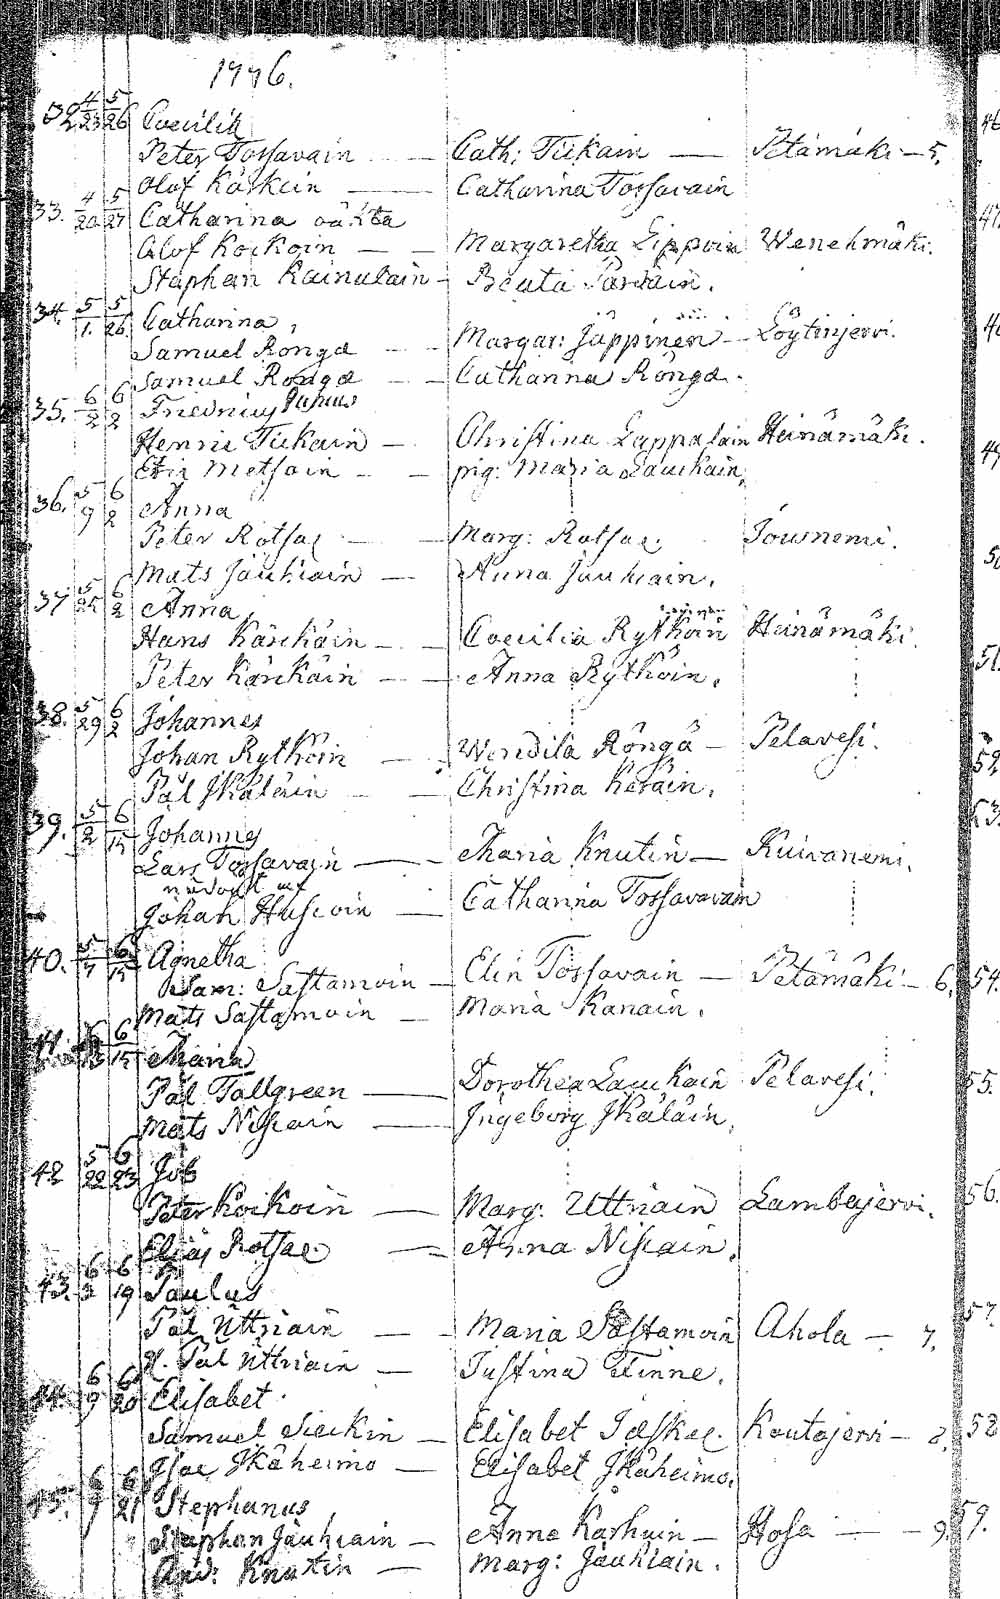 1776.
32. 4/23 5/26 Coecilia
Peter Tossavain — Cath: Tiikain — Petämäki — 5.
Olof Käckein — Catharina Tossavain
33. 4/20 5/27 Catharina oäkta
Olof Koikoin — Margaretha Lippoin Wenehmäki.
Staphan Kainulain — Beata Parviain.
34. 5/1. 5/26 Catharina,
Samuel Röngä — Margar: Jäppinen — Löytinjervi.
Samuel Röngä — Catharina Röngä.
35. 6/2 6/2 Friedricus Junius
Henric Tiikain — Christina Lappalain Heinämäki.
Eric Metsoin — pig: Maria Laukain,
36. 5/9 6/2 Anna
Peter Rotsae — Marg: Rotsae. Jouxnemi.
Mats Jauhiain — Anna Jauhiain.
37 5/25 6/2 Anna,
Hans Kärckäin — Coecilia Rythöin Heinämäki.
Peter Kärckäin — Anna Rythöin.
38. 5/29 6/2 Johannes
Johan Rythöin — Wendila Röngä — Pelavesi.
Pål Ikäläin — Christina Keräin.
39. 5/2 6/15 Johannes
Lars Tossavain — Maria Knutin — Kuivanemi.
Johan Huscoin — Catharina Tossavavain
40. 5/7 6/15 Agnetha
Sam: Sastamoin — Elin Tossavain — Petämäki — 6. 54.
Mats Sastamoin — Maria Ikänain.
41 6/15 Maria
Pål Tallgreen — Dorothea Laukain Pelavesi. 55.
Mats Niscain — Ingeborg Ikäläin.
42 5/22 6/23 Job
Peter Koikoin — Marg: Uttriain Lambajervi. 56.
Elias Rotsae. — Anna Niscain.
43. 6/2 6/19 Paulus
Pål Uttriain — Maria Sastamoin Ahola — 7. 57.
H. Pål Uttriain — Justina Finne.
44. 6/9 6/20 Elisabet.
Samuel Sieckin — Elisabet Idskae. Koutajervi — 8. 58
Isac Ikäheimo — Elisabet Ikäheimo.
45. 6/9 6/21 Stephanus
Staphan Jauhiain — Anna Karhuin — Hosa — 9. 59.
And: Knutin — Marg: Jauhiain.